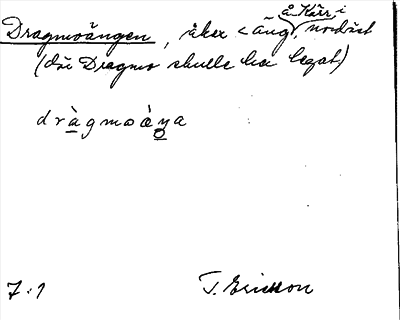 Dragmoängen, åker < äng å Kärr, i nordöst
(där Dragmo skulle ha legat)
dràgmoèŋa
7:1
T. Ericsson